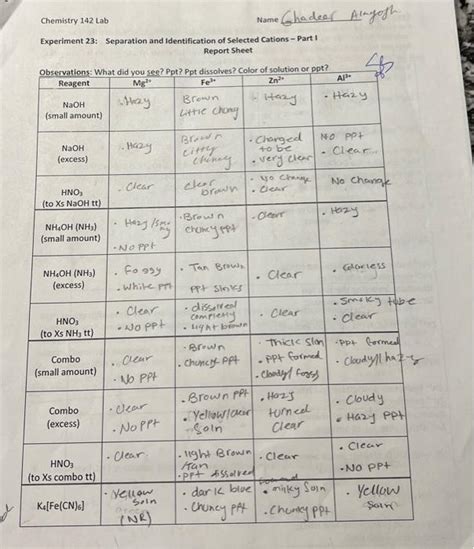 Chemistry 142 Lab
Name Ghadeer
Experiment 23: Separation and Identification of Selected Cations – Part I
Report Sheet
Observations: What did you see? Ppt? Ppt dissolves? Color of solution or ppt?
Reagent Mg²⁺ Fe³⁺ Zn²⁺ Al³⁺
NaOH (small amount) · Hazy Brown little Chong · Hazy · Hazy
NaOH (excess) · Hazy Brown little chuncy · Changed to be · very clear NO PPt · Clear
HNO₃ (to Xs NaOH tt) · Clear clear brown · No Change · Clear No Change
NH₄OH (NH₃) (small amount) · Hazy · NO PPt · Brown chuncy ppt · Clear · Hazy
NH₄OH (NH₃) (excess) · foggy · White PPt · Tan Brown PPt sinks · Clear · Colorless
HNO₃ (to Xs NH₃ tt) · Clear · NO PPt · dissolved completly · light brown · Clear · Smoky tube · Clear
Combo (small amount) · Clear · No PPt · Brown · Chuncy PPt · Thick · PPt formed · Cloudy/ foggy · PPt formed · Cloudy// hazy
Combo (excess) · Clear · No PPt · Brown PPt · Yellow/clear Soln · Hazy turned Clear · Cloudy · Hazy PPt
HNO₃ (to Xs combo tt) · Clear · light Brown /tan · ppt dissolved · Clear · Clear · NO PPt
K₄[Fe(CN)₆] · Yellow Soln (NR) · dark blue · Chuncy PPt · milky Soln · Chunky ppt · Yellow Soln